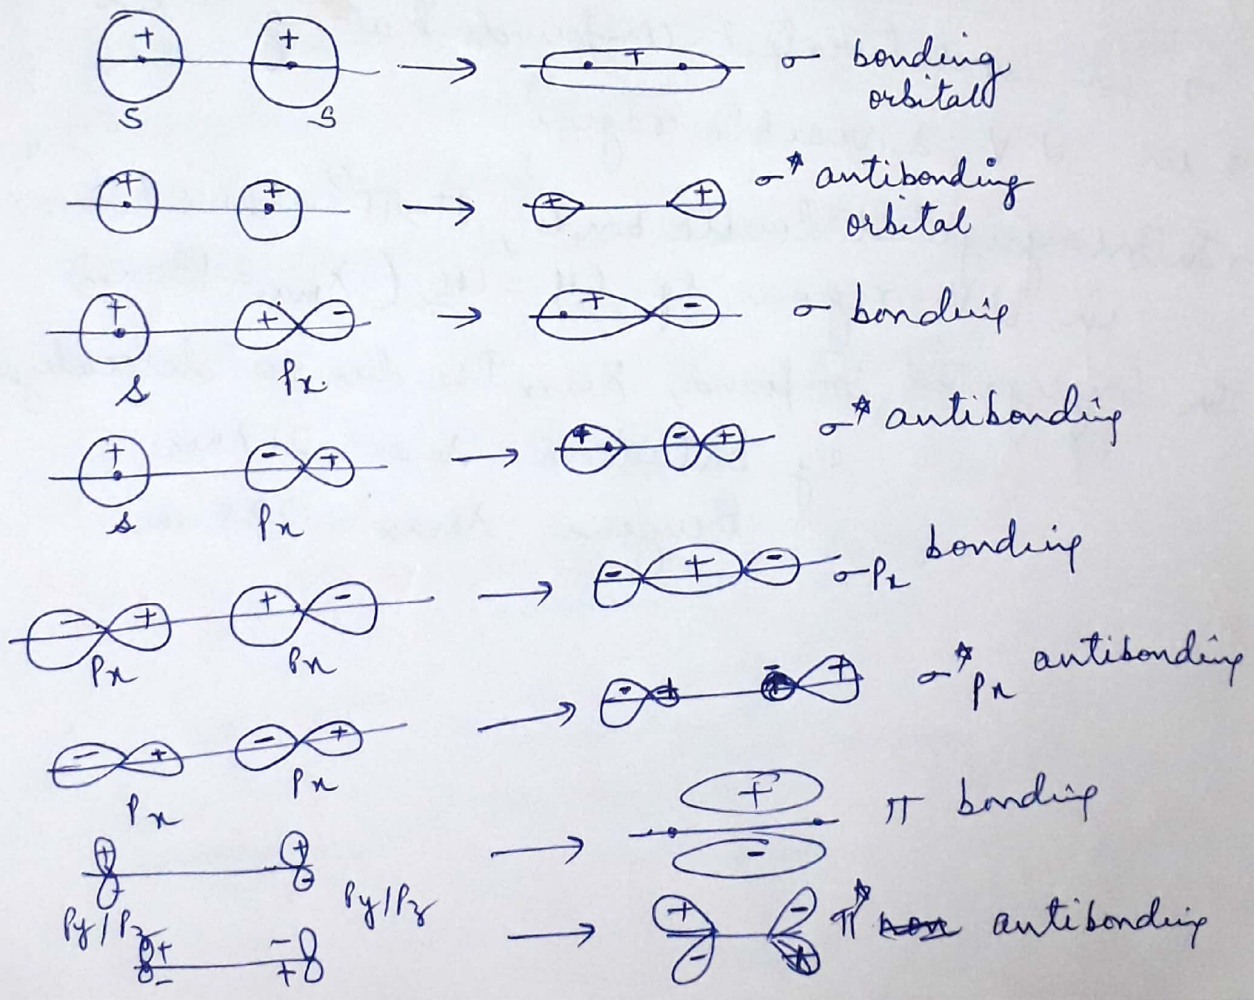 + + → + σ bonding
orbital
S S
+ + → + + σ* antibonding
orbital
+ + - → + - σ bonding
s Px
+ - + → + - + σ* antibonding
s Px
- + + - → - + - σPx bonding
Px Px
- + - + → - + - + σ*Px antibonding
Px Px
+ + - → + - π bonding
Py/Pz Py/Pz
+ - - + → + - - + π* antibonding